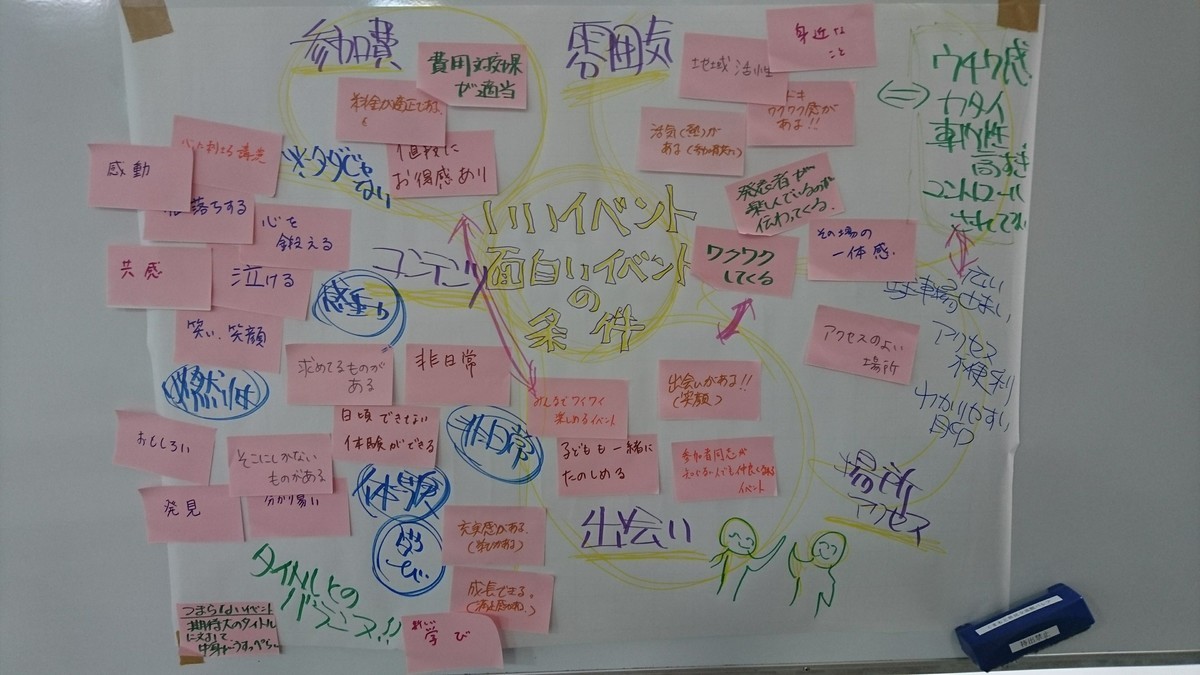 参加費
費用対効果
が適当
料金が適正である。
値段に
お得感あり
※タダじゃ
ない
雰囲気
身近な
こと
地域活性
ワクワク感が
ある!!
活気(熱)が
ある
発表者が
楽しんでいるのが
伝わってくる。
ワクワク
してくる
その場の
一体感.
ウチワ感
カタイ
専門性
高すぎ
コントロール
されてない
いいイベント
面白いイベント
の
条件
コンテンツ
感動
落ちする
心を
鍛える
共感
泣ける
笑い、笑顔
感動
求めてるものが
ある
非日常
日頃できない
体験ができる
非日常
おもしろい
そこにしかない
ものがある
発見
分かり易い
体験
学び
充実感がある.
(学びがある)
成長できる.
学び
タイトルとの
バランス!!
つまらないイベント
期待大のタイトル
に対して
中身がうすっぺら
楽しめるイベント
子どもも一緒に
たのしめる
出会いがある!!
(笑顔)
参加者同志が
イベント
出会い
アクセスのよい
場所
広い
駐車場せまい
アクセス
不便利
わかりやすい
目印
場所
アクセス
持出禁止